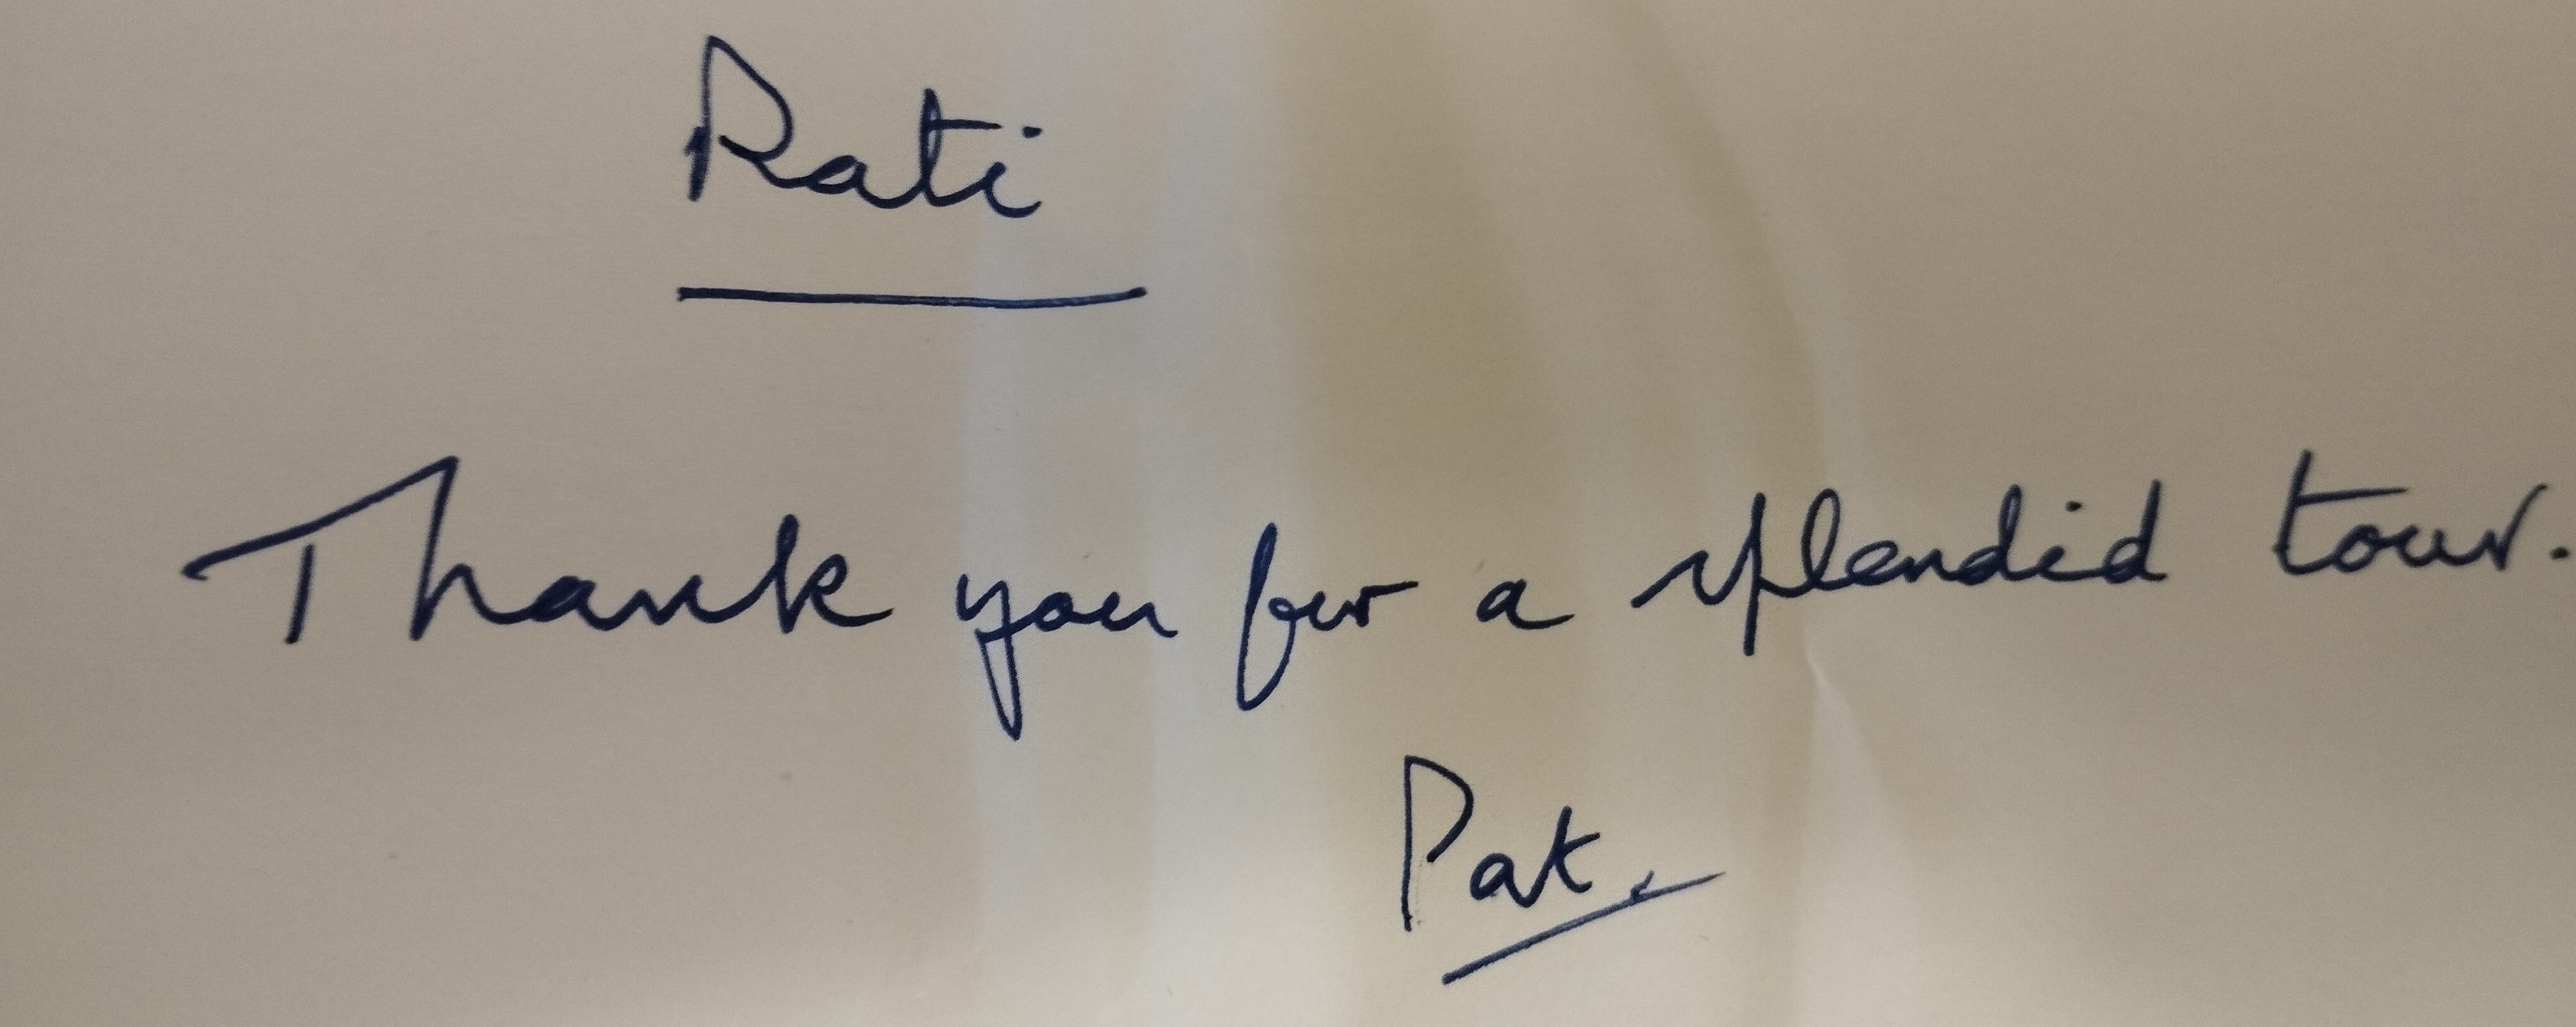 Rati
Thank you for a splendid tour.
Pat.